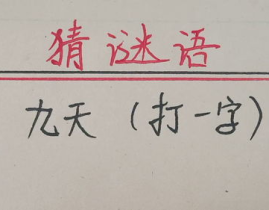 猜谜语
九天（打一字）